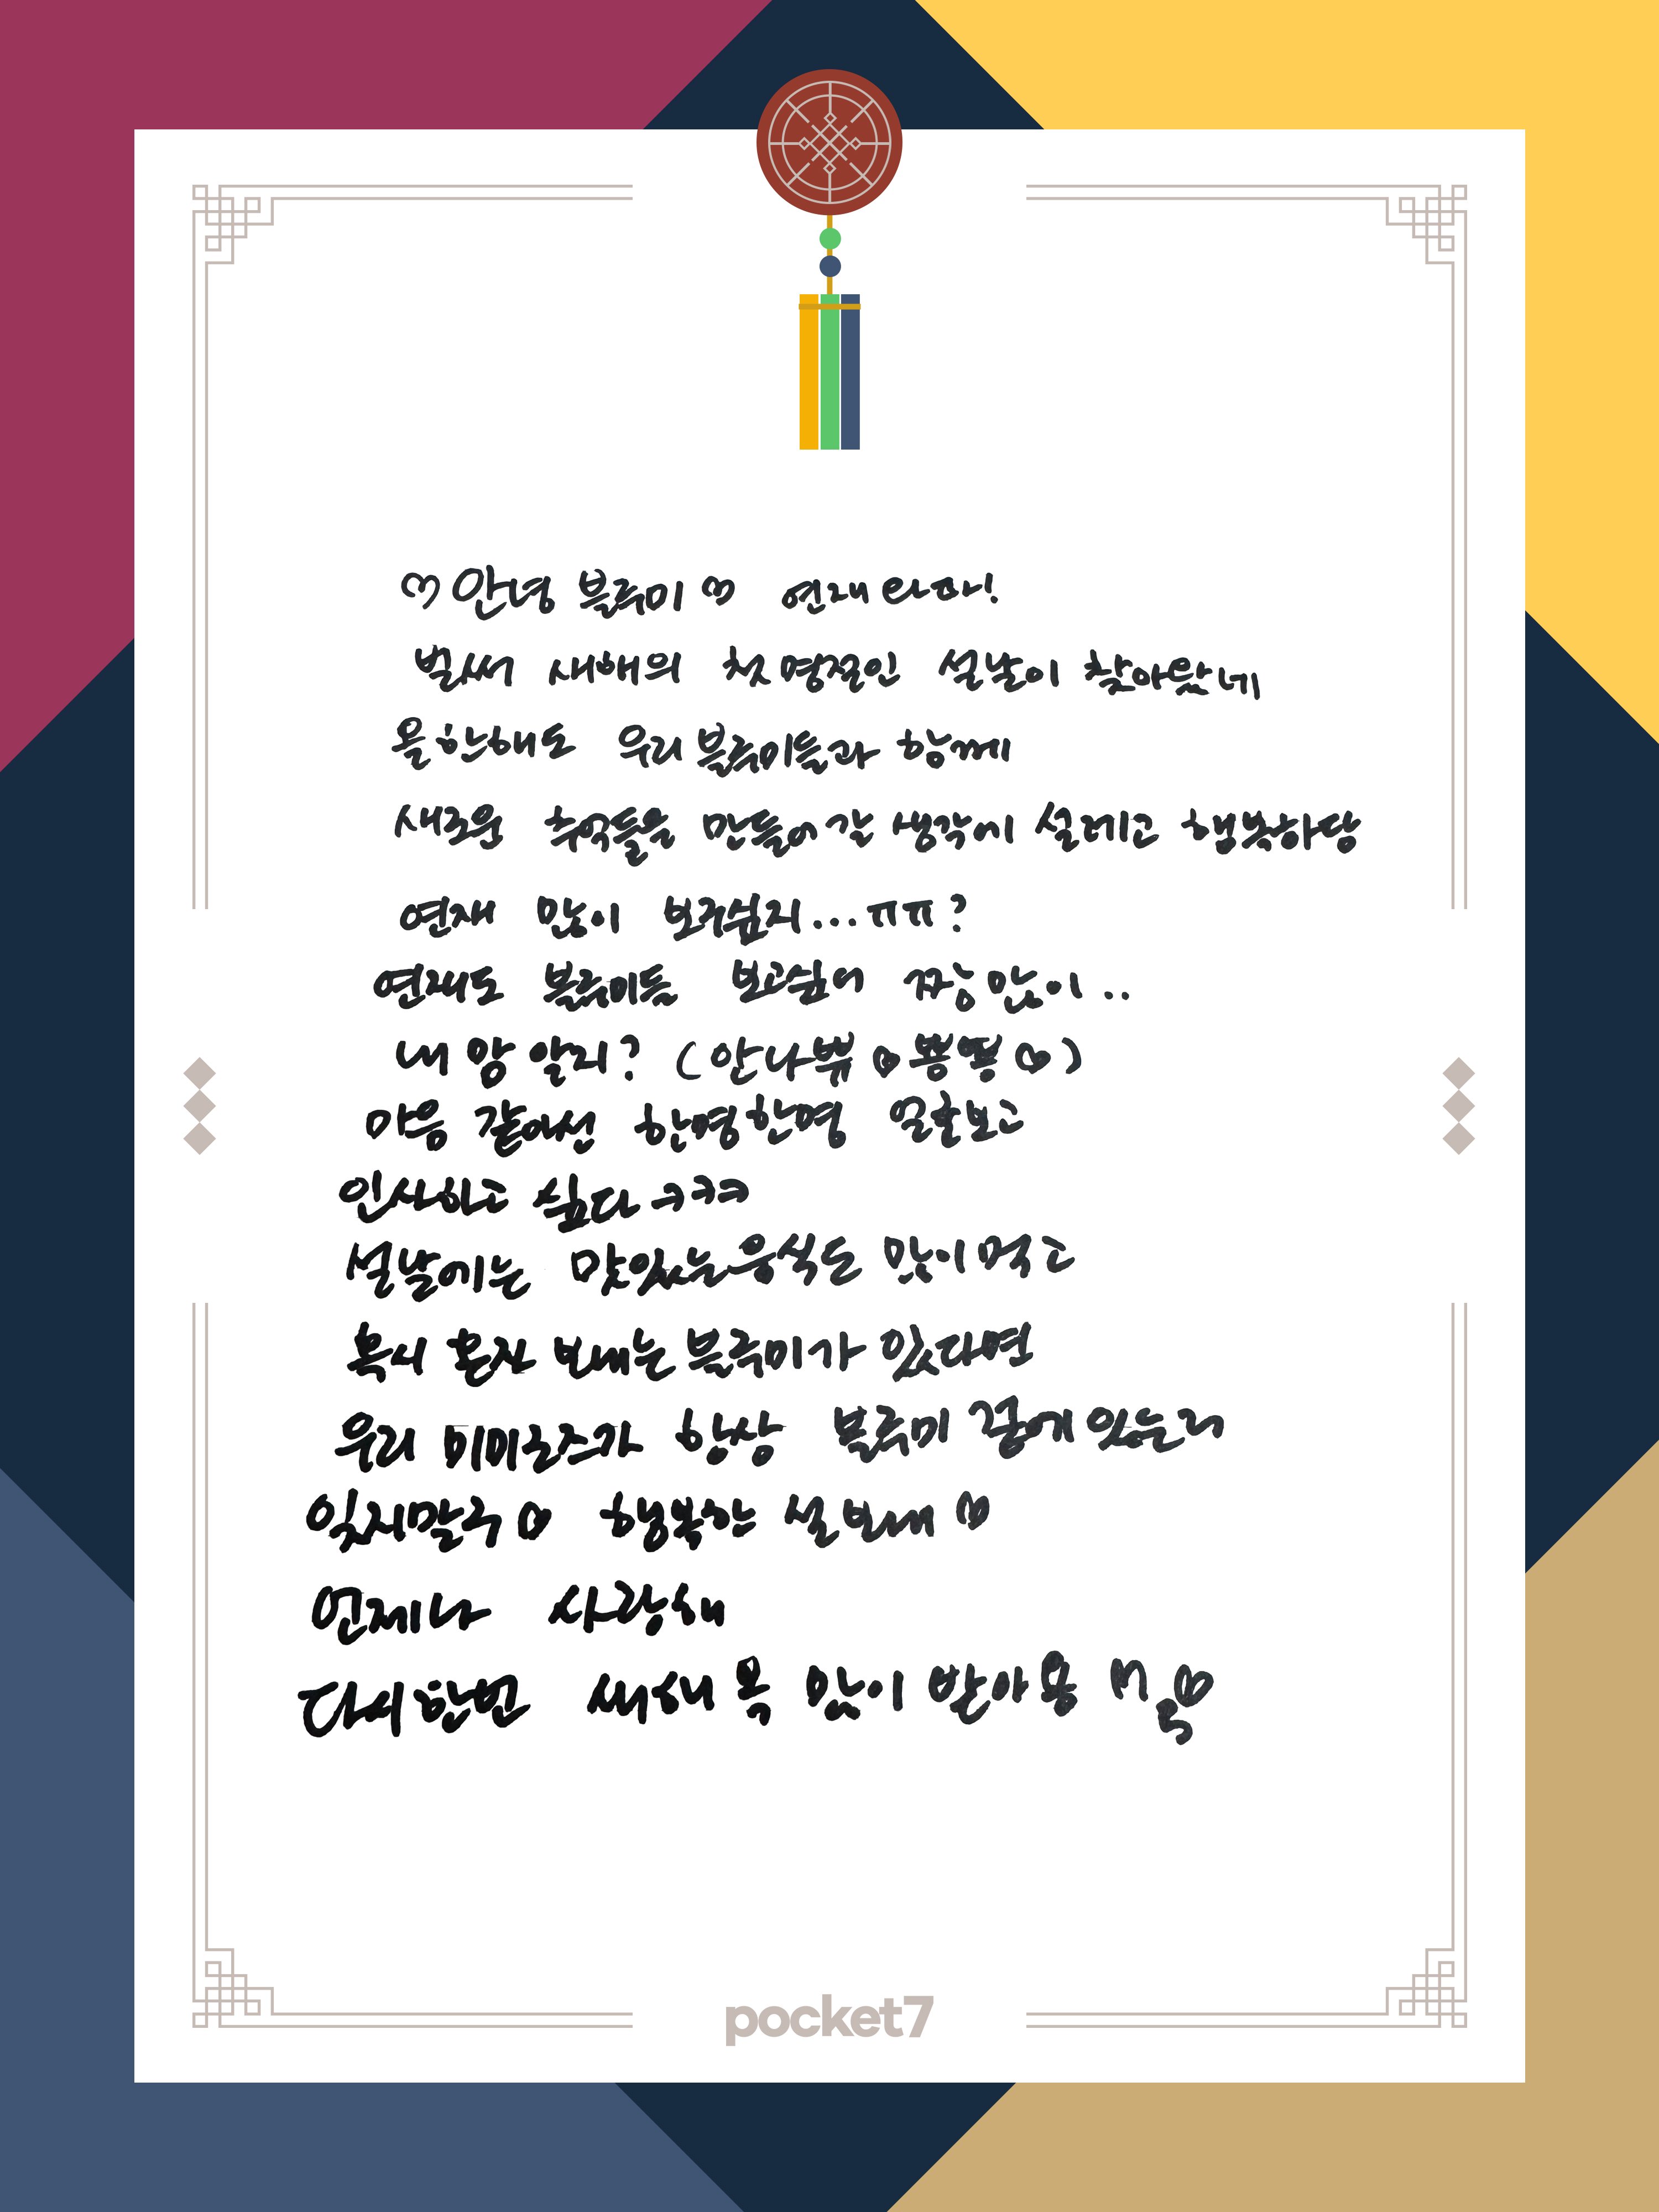 ♡안녕 블루미♡ 연재 라따!
벌써 새해의 첫 명절인 설날이 찾아왔네
올 한해도 우리 블루미들과 함께
새로운 추억들을 만들어갈 생각에 설레고 행복하당
연재 많이 보구싶지...ㅠㅠ?
연재도 블루미들 보고싶어 짱 많이..
내 맘 알지? (안나쀼♡뿅뿅♡)
마음 같아선 한명한명 얼굴보고
인사하고 싶다ㅋㅋㅋ
설날에는 맛있는음식도 많이먹고
혹시 혼자 보내는 블루미가 있다면
우리 미미로즈가 항상 블루미 곁에 있는거
잊지말구♡ 행복한 설 보내♡
언제나 사랑해
다시한번 새해 복 많이 받아용♡
pocket7